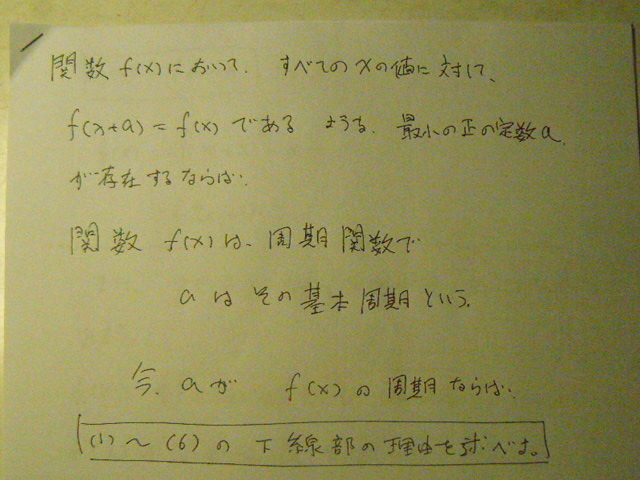 関数 f(x)において、すべてのxの値に対して、
f(x+a)=f(x)である ような、最小の正の定数a
が存在するならば、
関数 f(x)は、周期関数で
aはその基本周期という。
今、aが f(x)の周期ならば、
(1)〜(6)の下線部の理由を述べよ。